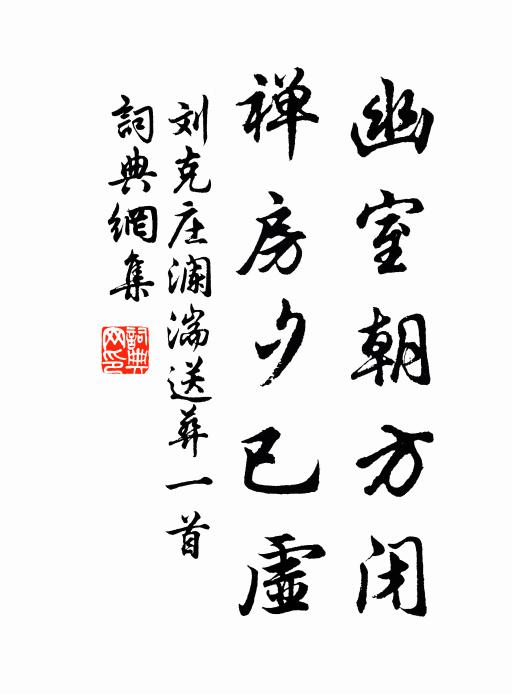 幽室朝方闭
禅房夕已虚
刘克庄澜湍送葬一首
詞典網集
詞典网印